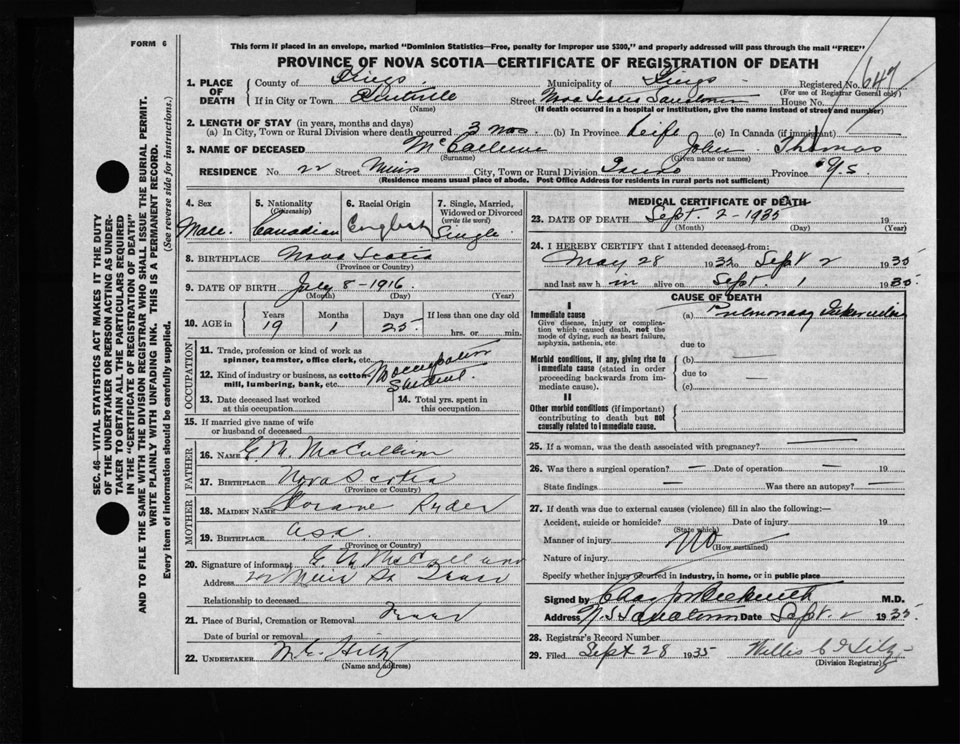 FORM 6
This form if placed in an envelope, marked "Dominion Statistics—Free, penalty for improper use $300," and properly addressed will pass through the mail "FREE"
PROVINCE OF NOVA SCOTIA—CERTIFICATE OF REGISTRATION OF DEATH
1. PLACE OF DEATH
County of Kings Municipality of Kings Registered No. 647
(For use of Registrar General only)
If in City or Town Kentville Street House No.
(Name) (If death occurred in a hospital or institution, give the name instead of street and number)
2. LENGTH OF STAY (in years, months and days)
(a) In City, Town or Rural Division where death occurred 3 mos. (b) In Province Life (c) In Canada (if immigrant)
3. NAME OF DECEASED John Thomas
(Surname) (Given name or names)
RESIDENCE No. 22 Street Muir City, Town or Rural Division Truro Province N.S
(Residence means usual place of abode. Post Office Address for residents in rural parts not sufficient)
4. Sex
Male.
5. Nationality (Citizenship)
Canadian
6. Racial Origin
English
7. Single, Married, Widowed or Divorced (write the word)
Single
8. BIRTHPLACE Nova Scotia
(Province or Country)
9. DATE OF BIRTH July 8-1916.
(Month) (Day) (Year)
10. AGE in Years Months Days If less than one day old
19 1 25 hrs. or min.
OCCUPATION
11. Trade, profession or kind of work as spinner, teamster, office clerk, etc. No occupation
12. Kind of industry or business, as cotton-mill, lumbering, bank, etc. Student.
13. Date deceased last worked at this occupation
14. Total yrs. spent in this occupation
15. If married give name of wife or husband of deceased
FATHER
16. NAME
17. BIRTHPLACE Nova Scotia
(Province or Country)
MOTHER
18. MAIDEN NAME Ryder
19. BIRTHPLACE
(Province or Country)
20. Signature of informant
Address 22 Muir St Truro
Relationship to deceased
21. Place of Burial, Cremation or Removal Truro
Date of burial or removal
22. UNDERTAKER
(Name and address)
MEDICAL CERTIFICATE OF DEATH
23. DATE OF DEATH Sept 2-1935 19
(Month) (Day) (Year)
24. I HEREBY CERTIFY that I attended deceased from:
May 28 1935 to Sept 2 1935
and last saw him alive on Sept. 1 1935
CAUSE OF DEATH
I
Immediate cause
Give disease, injury or complication which caused death, not the mode of dying, such as heart failure, asphyxia, asthenia, etc.
(a) Pulmonary Tuberculosis
due to
Morbid conditions, if any, giving rise to immediate cause (stated in order proceeding backwards from immediate cause).
(b) —
due to —
(c)
II
Other morbid conditions (if important) contributing to death but not causally related to immediate cause.
25. If a woman, was the death associated with pregnancy? —
26. Was there a surgical operation? — Date of operation — 19
State findings — Was there an autopsy? —
27. If death was due to external causes (violence) fill in also the following:—
Accident, suicide or homicide? Date of injury 19
(State which)
Manner of injury No
(How sustained)
Nature of injury
Specify whether injury occurred in industry, in home, or in public place
Signed by M.D.
Address N.S. Sanatorium Date Sept. 2 1935
28. Registrar's Record Number
29. Filed Sept 28 1935
(Division Registrar)
SEC. 46—VITAL STATISTICS ACT MAKES IT THE DUTY
OF THE UNDERTAKER OR PERSON ACTING AS UNDER-
TAKER TO OBTAIN ALL THE PARTICULARS REQUIRED
IN THE "CERTIFICATE OF REGISTRATION OF DEATH"
AND TO FILE THE SAME WITH THE DIVISION REGISTRAR WHO SHALL ISSUE THE BURIAL PERMIT.
WRITE PLAINLY WITH UNFADING INK. THIS IS A PERMANENT RECORD.
Every item of information should be carefully supplied. (See reverse side for instructions.)